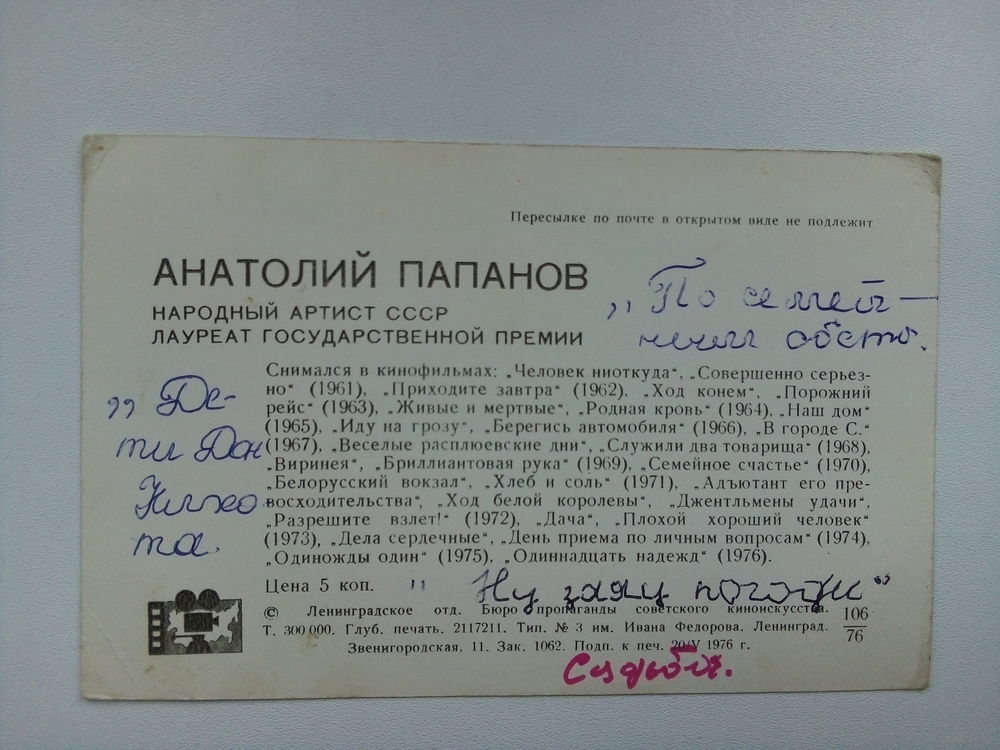 Пересылке по почте в открытом виде не подлежит
АНАТОЛИЙ ПАПАНОВ
НАРОДНЫЙ АРТИСТ СССР
ЛАУРЕАТ ГОСУДАРСТВЕННОЙ ПРЕМИИ
„По семей-
ным обсто.
Снимался в кинофильмах: „Человек ниоткуда“, „Совершенно серьез-
но“ (1961), „Приходите завтра“ (1962), „Ход конем“, „Порожний
рейс“ (1963), „Живые и мертвые“, „Родная кровь“ (1964), „Наш дом“
(1965), „Иду на грозу“, „Берегись автомобиля“ (1966), „В городе С.“
(1967), „Веселые расплюевские дни“, „Служили два товарища“ (1968),
„Виринея“, „Бриллиантовая рука“ (1969), „Семейное счастье“ (1970),
„Белорусский вокзал“, „Хлеб и соль“ (1971), „Адъютант его пре-
восходительства“, „Ход белой королевы“, „Джентльмены удачи“,
„Разрешите взлет!“ (1972), „Дача“, „Плохой хороший человек“
(1973), „Дела сердечные“, „День приема по личным вопросам“ (1974),
„Одиножды один“ (1975), „Одиннадцать надежд“ (1976).
„Де-
ти Дон
Кихо
та.
Цена 5 коп.
"Ну заяц погоди"
© Ленинградское отд. Бюро пропаганды советского киноискусства.
Т. 300 000. Глуб. печать. 2117211. Тип. № 3 им. Ивана Федорова. Ленинград.
Звенигородская, 11. Зак. 1062. Подп. к печ. 20/V 1976 г.
106
76